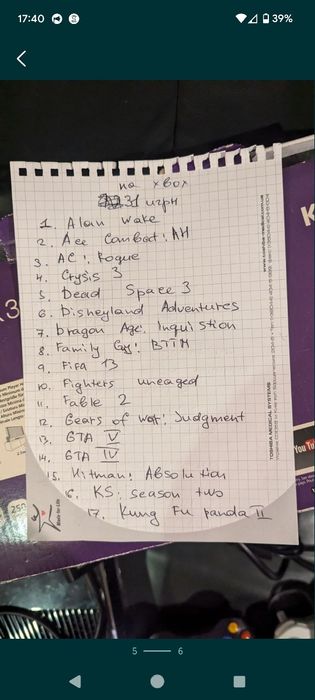 17:40
39%
на xbox
31 игры
1. Alan wake
2. Ace Combat: AH
3. AC: Rogue
4. Crysis 3
5. Dead Space 3
6. Disneyland Adventures
7. Dragon Age: Inquistion
8. Family Guy: BTTM
9. Fifa 13
10. Fighters uncaged
11. Fable 2
12. Gears of war: Judgment
13. GTA V
14. GTA IV
15. Hitman: Absolution
16. KS: season two
17. Kung Fu panda II
www.toshiba-medical.com.ua
TOSHIBA MEDICAL SYSTEMS
Made for Life
You Tu
K
3
250
5
6